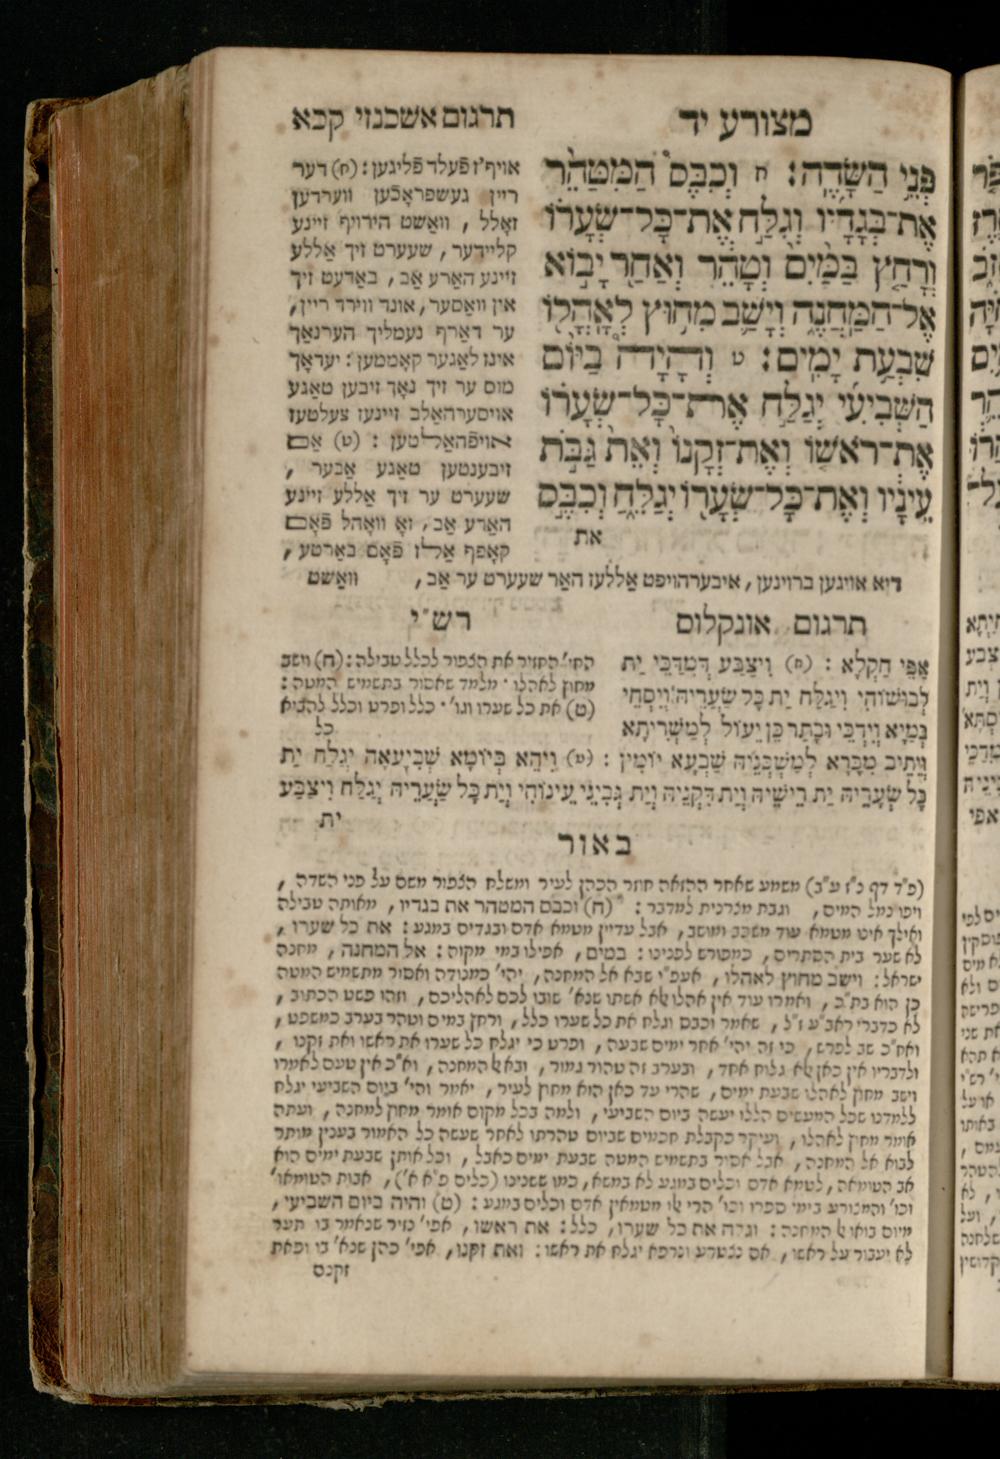 מצורע יד
תרגום אשכנזי קכא
פְּנֵי הַשָּׂדֶה: ח וְכִבֶּס הַמִּטַּהֵר
אֶת־בְּגָדָיו וְגִלַּח אֶת־כָּל־שְׂעָרוֹ
וְרָחַץ בַּמַּיִם וְטָהֵר וְאַחַר יָבוֹא
אֶל־הַמַּחֲנֶה וְיָשַׁב מִחוּץ לְאָהֳלוֹ
שִׁבְעַת יָמִים: ט וְהָיָה בַיּוֹם
הַשְּׁבִיעִי יְגַלַּח אֶת־כָּל־שְׂעָרוֹ
אֶת־רֹאשׁוֹ וְאֶת־זְקָנוֹ וְאֵת גַּבֹּת
עֵינָיו וְאֶת־כָּל־שְׂעָרוֹ יְגַלֵּחַ וְכִבֶּס
את
אויף'ז פֿעלד פֿליגען: (ח) דער
ריין געשפראָכֿען ווערדען
זאָלל, וואַשט הירויף זיינע
קליידער, שעערט זיך אַללע
זיינע האַרע אַב, באַדעט זיך
אין וואַסער, אונד ווירד ריין,
ער דאַרף נעמליך הערנאָך
אינז לאַגער קאָממען: יעדאָך
מוס ער זיך נאָך זיבען טאַגע
אויסערהאַלב זיינעז צעלטעז
אויפֿהאַלטען: (ט) אַם
זיבענטען טאַגע אַבער,
שעערט ער זיך אַללע זיינע
האַרע אַב, זאָ וואָהל פֿאָם
קאָפף אַלז פֿאָם באַרטע,
דיא אויגען ברויגען, איבערהויפט אַללעז האַר שעערט ער אַב, וואַשט
תרגום אונקלוס
אַפֵּי חַקְלָא: (ח) וִיצַבַּע דְּמִדַּכֵּי יַת
לְבוּשׁוֹהִי וִיגַלַּח יַת כָּל שַׂעֲרֵיהּ וְיַסְחֵי
בְמַיָּא וְיִדְכֵּי וּבָתַר כֵּן יֵעוֹל לְמַשְׁרִיתָא
וְיִתֵיב מִבָּרָא לְמַשְׁכְּנֵיהּ שַׁבְעָא יוֹמִין: (ט) וִיהֵא בְּיוֹמָא שְׁבִיעָאָה יְגַלַּח יַת
כָּל שְׂעָרֵיהּ יַת רֵישֵׁיהּ וְיַת דִּקְנֵיהּ וְיַת גְּבִינֵי עֵינוֹהִי וְיַת כָּל שַׂעֲרֵיהּ יְגַלַּח וִיצַבַּע
ית
רש"י
החי' החזיר את הצפור לכלל טבילה: (ח) וישב
מחוץ לאהלו. מלמד שאסור בתשמיש המטה:
(ט) את כל שערו וגו'. כלל ופרט וכלל להביא
כל
באור
משמע שאחר ההזאה חוזר הכהן לעיר ומשלח הצפור משם על פני השדה,
(ח) וכבס המטהר את בגדיו, מאותה טבילה
ואילך אינו מטמא עוד משכב ומושב, אבל עדיין מטמא אדם ובגדים במגע: את כל שערו,
לא שער בית הסתרים, כמפורש לפנינו: במים, אפילו במי מקוה: אל המחנה, מחנה
ישראל: וישב מחוץ לאהלו, אעפ"י שבא אל המחנה, יהי' כמנודה ואסור מתשמיש המטה
כן הוא בת"כ, ואמרו עוד אין אהלו אלא אשתו שנא' שובו לכם לאהליכם, וזהו פשט הכתוב,
לא כדברי ראב"ע ז"ל, שאמר וכבס וגלח את כל שערו כלל, ורחץ במים וטהר בערב כמשפט,
ואח"כ שב לפרש, כי זה יהי' אחר ימים שבעה, ופרט כי יגלח כל שערו את ראשו ואת זקנו,
ולדבריו אין כאן אלא גלוח אחד, ובערב זה טהור גמור, ובא אל המחנה, וא"כ אין טעם לאמרו
וישב מחוץ לאהלו שבעת ימים, שהרי עד כאן הוא מחוץ לעיר, יאמר והי' ביום השביעי יגלח
ללמדנו שכל המעשים הללו יעשה ביום השביעי, ולמה בכל מקום אומר מחוץ למחנה, ועתה
אומר מחוץ לאהלו, ועיקר כקבלת חכמים שביום טהרתו לאחר שעשה כל האמור בענין מותר
לבוא אל המחנה, אבל אסור בתשמיש המטה שבעת ימים כאבל, וכל אותן שבעת ימים הוא
אב הטומאה, לטמא אדם וכלים במגע לא במשא, כמו ששנינו (כלים פ"א א'), אבות הטומאו'
וכו' והמצורע בימי ספרו וכו' הרי אלו מטמאין אדם וכלים במגע: (ט) והיה ביום השביעי,
מיום בואו אל המחנה: וגלח את כל שערו, כלל: את ראשו, אפי' נזיר שנאמר בו תער
לא יעבור על ראשו, אם נצטרע ונרפא יגלח את ראשו: ואת זקנו, אפי' כהן שנא' בו ופאת
זקנם